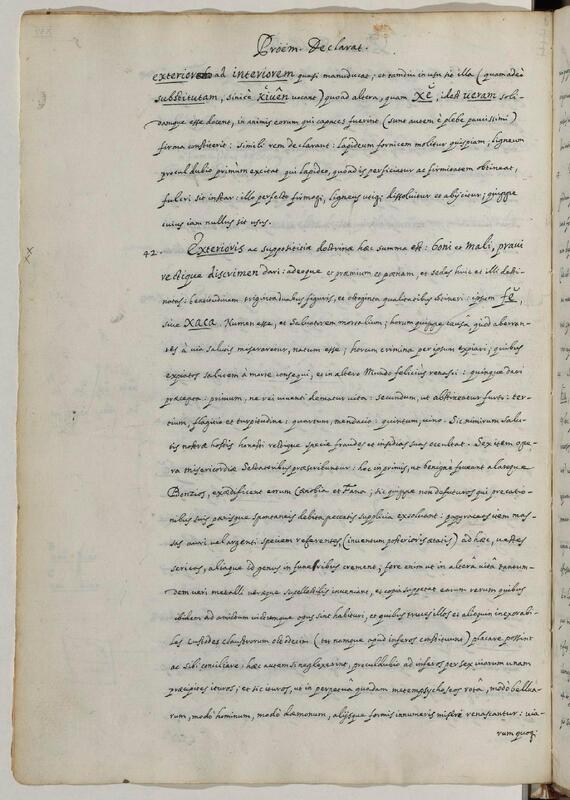 Proëm. Declarat.
exteriore ad interiorem quasi manuducat; et tamdiu in usu sit illa (quam adeò
substitutam, sivè xiuên vocant) quoad altera, quam Xě, id est veram soli-
damque esse docent, in animis eorum qui capaces fuerint (sunt autem è plebe paucissimi)
firma constiterit: simili rem declarant: lapideum fornicem molitur quispiam, ligneum
procul dubio primùm excitat qui lapideo, quoad is perficiatur ac firmitatem obtineat,
fulcri sit instar: illo perfecto firmoq;, ligneus utiq; dissolvitur et abjicitur; quippe
cuius iam nullus sit usus.
42. Exterioris ac supposititiæ doctrinæ hæc summa est: boni et mali, pravi
rectique discrimen dari: adeoque et præmium et pœnam, et sedes huic et illi desti-
natas: beatitudinem triginta duabus figuris, et octoginta qualitatibus obtineri: ipsum fě,
sive Xaca Numen esse, et Salvatorem mortalium; horum quippe causâ, quòd aberran-
tes à via salutis miseraretur, natum esse; horum crimina per ipsum expiari; quibus
expiatos salutem à morte consequi, et in altero Mundo felicius renasci: quinque dari
præcepta: primum, ne rei viventi dematur vita: secundum, ut abstineatur furto: ter-
tium, flagitio et turpitudine: quartum, mendacio: quintum, vino. Sic nimirum salu-
tis nostræ hostis honesti rectique specie fraudes et insidias suas occultat. Sex item ope-
ra misericordiæ Sectatoribus præscribuntur: hoc in primis, ut benignè foveant alantque
Bonzios, exædificent eorum Cœnobia et Fana; sic quippe non defuturos qui precatio-
nibus suis pœnisque spontaneis debita peccatis supplicia exsolvant: papyraceas item mas-
sas auri vel argenti speciem referentes, (inventum posterioris ætatis) ad hæc, vestes
sericas, aliaque id genus in funebribus crement; fore enim ut in alterâ vitâ tantum-
dem veri metalli veræque supellectilis inveniant, et copia suppetat earum rerum quibus
ibidem ad amictum victumque opus sint habituri, et quibus truces illos et alioquin inexorabi-
les custodes claustrorum octodecim (tot namque apud inferos constituunt) placare possint
ac sibi conciliare: hæc autem si neglexerint, proculdubio ad inferos per sex viarum unam
præcipites ituros; et sic ituros, ut in perpetuâ quadam metempsychoseos rotâ, modò bellua-
rum, modò hominum, modò dæmonum, alijsque formis innumeris miserè renascantur: via-
rum quoq;